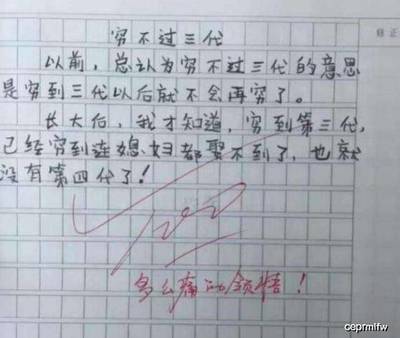 穷不过三代
以前，总认为穷不过三代的意思
是穷到三代以后就不会再穷了。
长大后，我才知道，穷到第三代，
已经穷到连媳妇都娶不到了，也就
没有第四代了！
100
多么痛的领悟！
ceprmlfw